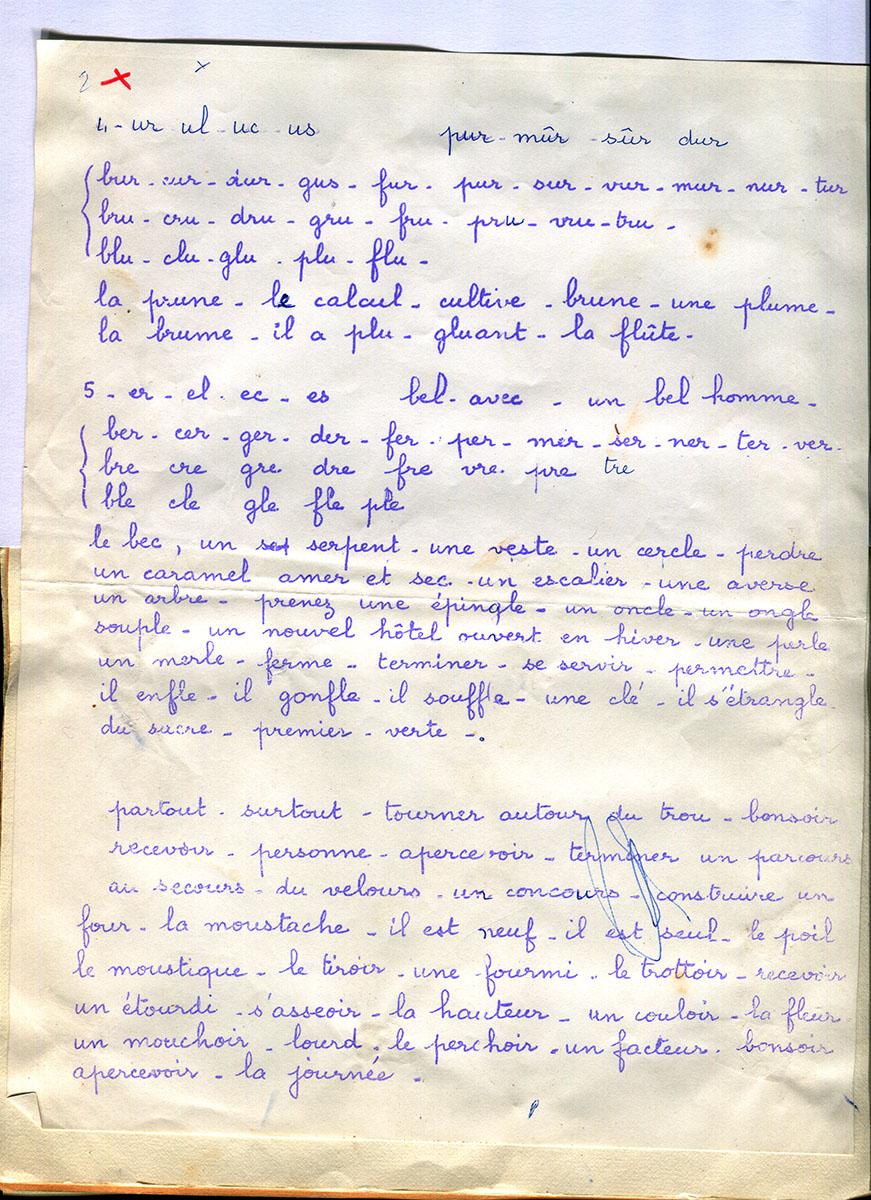 2 x
4 - ur ul uc us pur - mûr - sûr dur
bur - cur - dur - gus - fur - pur - sur - vur - mur - nur - tur
bru - cru - dru - gru - fru - pru - vru - tru -
blu - clu - glu - plu - flu -
la prune - le calcul - cultive - brune - une plume -
la brume - il a plu - gluant - la flûte -
5 - er - el - ec - es bel - avec - un bel homme -
ber - cer - ger - der - fer - per - mer - ser - ner - ter - ver -
bre cre gre dre fre vre pre tre
ble cle gle fle ple
le bec, un serpent - une veste - un cercle - perdre
un caramel amer et sec - un escalier - une averse
un arbre - prenez une épingle - un oncle - un ongle
souple - un nouvel hôtel ouvert en hiver - une perle
un merle - ferme - terminer - se servir - permettre -
il enfle - il gonfle - il souffle - une clé - il s'étrangle
du sucre - premier - verte -.
partout - surtout - tourner autour du trou - bonsoir
recevoir - personne - apercevoir - terminer un parcours
au secours - du velours - un concours - construire un
four - la moustache - il est neuf - il est seul - le poil
le moustique - le tiroir - une fourmi - le trottoir - recevoir
un étourdi - s'asseoir - la hauteur - un couloir - la fleur -
un mouchoir - lourd - le perchoir - un facteur - bonsoir
apercevoir - la journée -